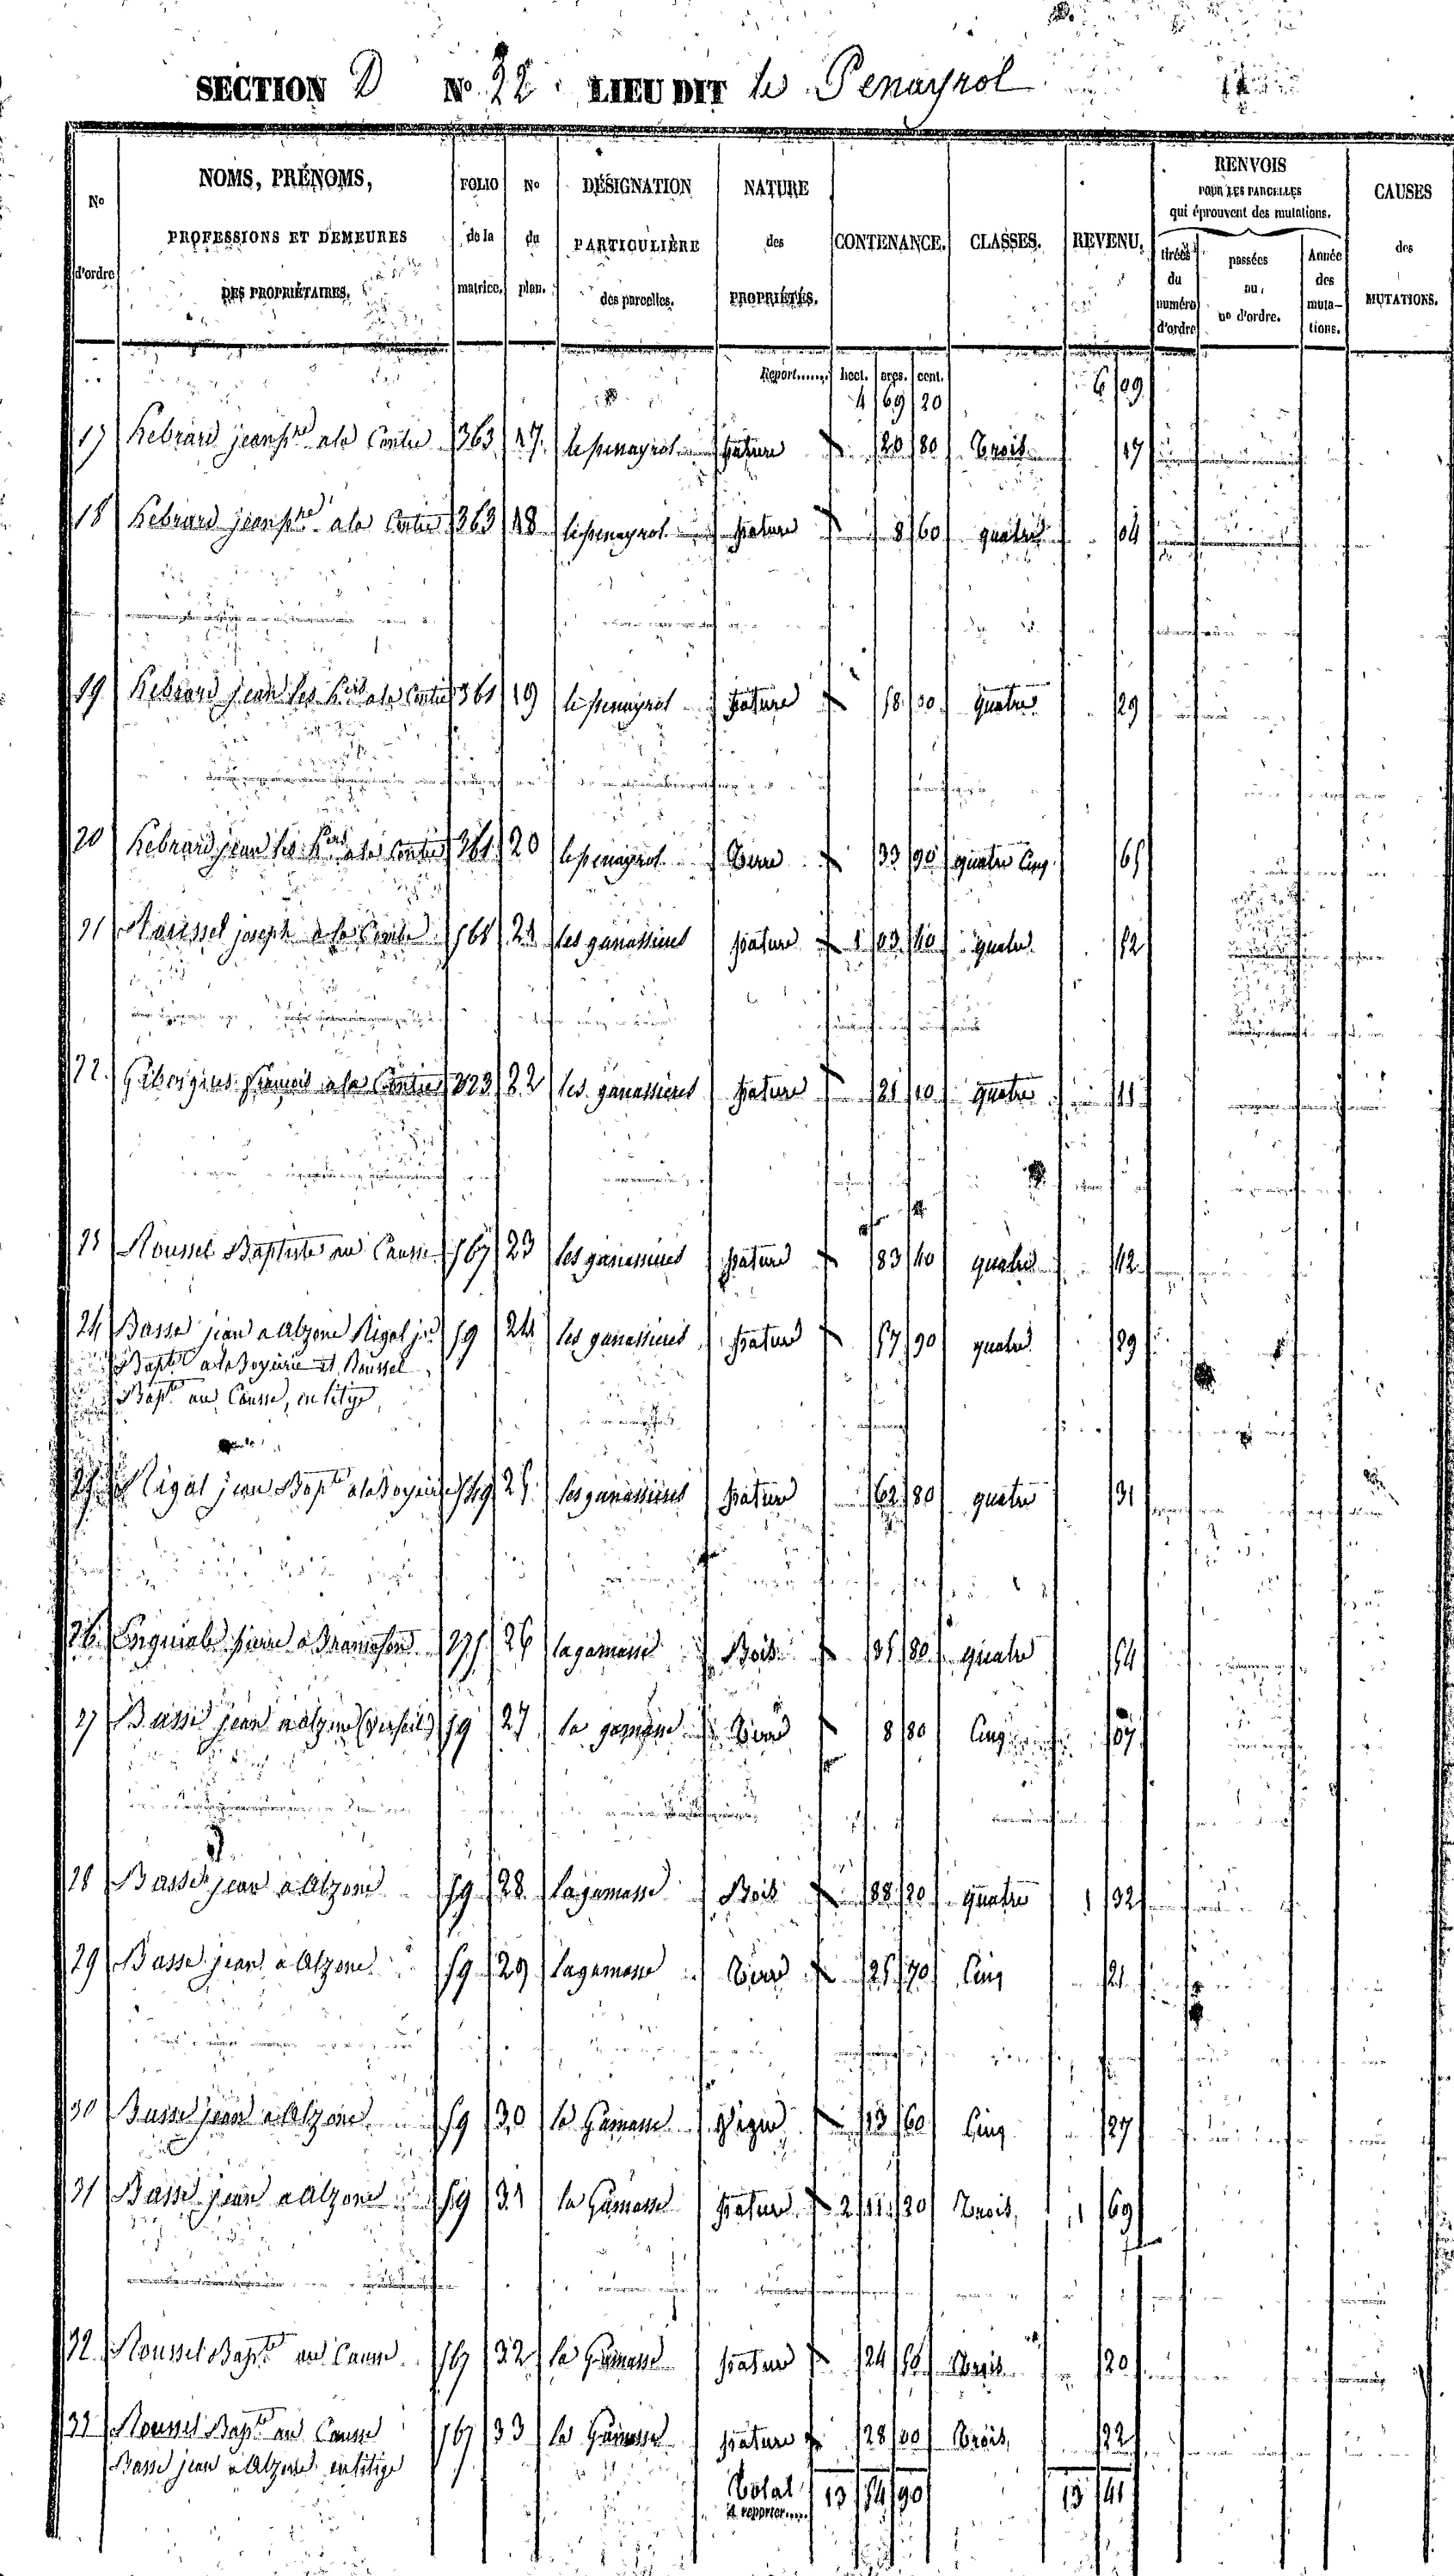 SECTION D No 32 LIEU DIT le Penayrol
No d'ordre
NOMS, PRÉNOMS, PROFESSIONS ET DEMEURES DES PROPRIÉTAIRES.
FOLIO de la matrice.
No du plan.
DÉSIGNATION PARTICULIÈRE des parcelles.
NATURE des PROPRIÉTÉS.
CONTENANCE.
CLASSES.
REVENU.
RENVOIS POUR LES PARCELLES qui éprouvent des mutations.
tirées du numéro d'ordre
passées au no d'ordre.
Année des mutations.
CAUSES des MUTATIONS.
Report...... hect. ares. cent.
4 69 20 6 09
17 363 17 le penayrol pature 20 80 Trois 17
18 363 18 le penayrol pature 8 60 quatre 04
19 361 19 le penayrol pature quatre 29
20 361 20 le penayrol Terre 33 90 quatre Cinq 65
21 Roussel joseph 568 21 les ganassieres pature 1 03 40 quatre 52
22 323 22 les ganassieres pature 21 10 quatre 11
23 Roussel Baptiste au Causse 567 23 les ganassieres pature 83 40 quatre 42
24 Basse jean a Alzone Rigal jn 59 24 les ganassieres pature 57 90 quatre 29
Bapte a la Boyerie et Roussel
Bapte au Causse, en litige
25 Rigal jean Bapte a la Boyerie 549 25 les ganassieres pature 62 80 quatre 31
26 pierre 275 26 la gamasse Bois 35 80 quatre 54
27 Basse jean a alzone 59 27 la gamasse Terre 8 80 Cinq 07
28 Basse jean a Alzone 59 28 la gamasse Bois 88 20 quatre 1 32
29 Basse jean a Alzone 59 29 la gamasse Terre 25 70 Cinq 21
30 Basse jean a Alzone 59 30 la Gamasse Vigne 13 60 Cinq 27
31 Basse jean a Alzone 59 31 la Gamasse pature 2 11 20 Trois 1 69
32 Roussel Bapte au Causse 567 32 la Gamasse pature 24 Trois 20
33 Roussel Bapte au Causse 567 33 la Gamasse pature 28 00 Trois 22
Basse jean a Alzone en litige
Total A reporter..... 13 54 90 13 41